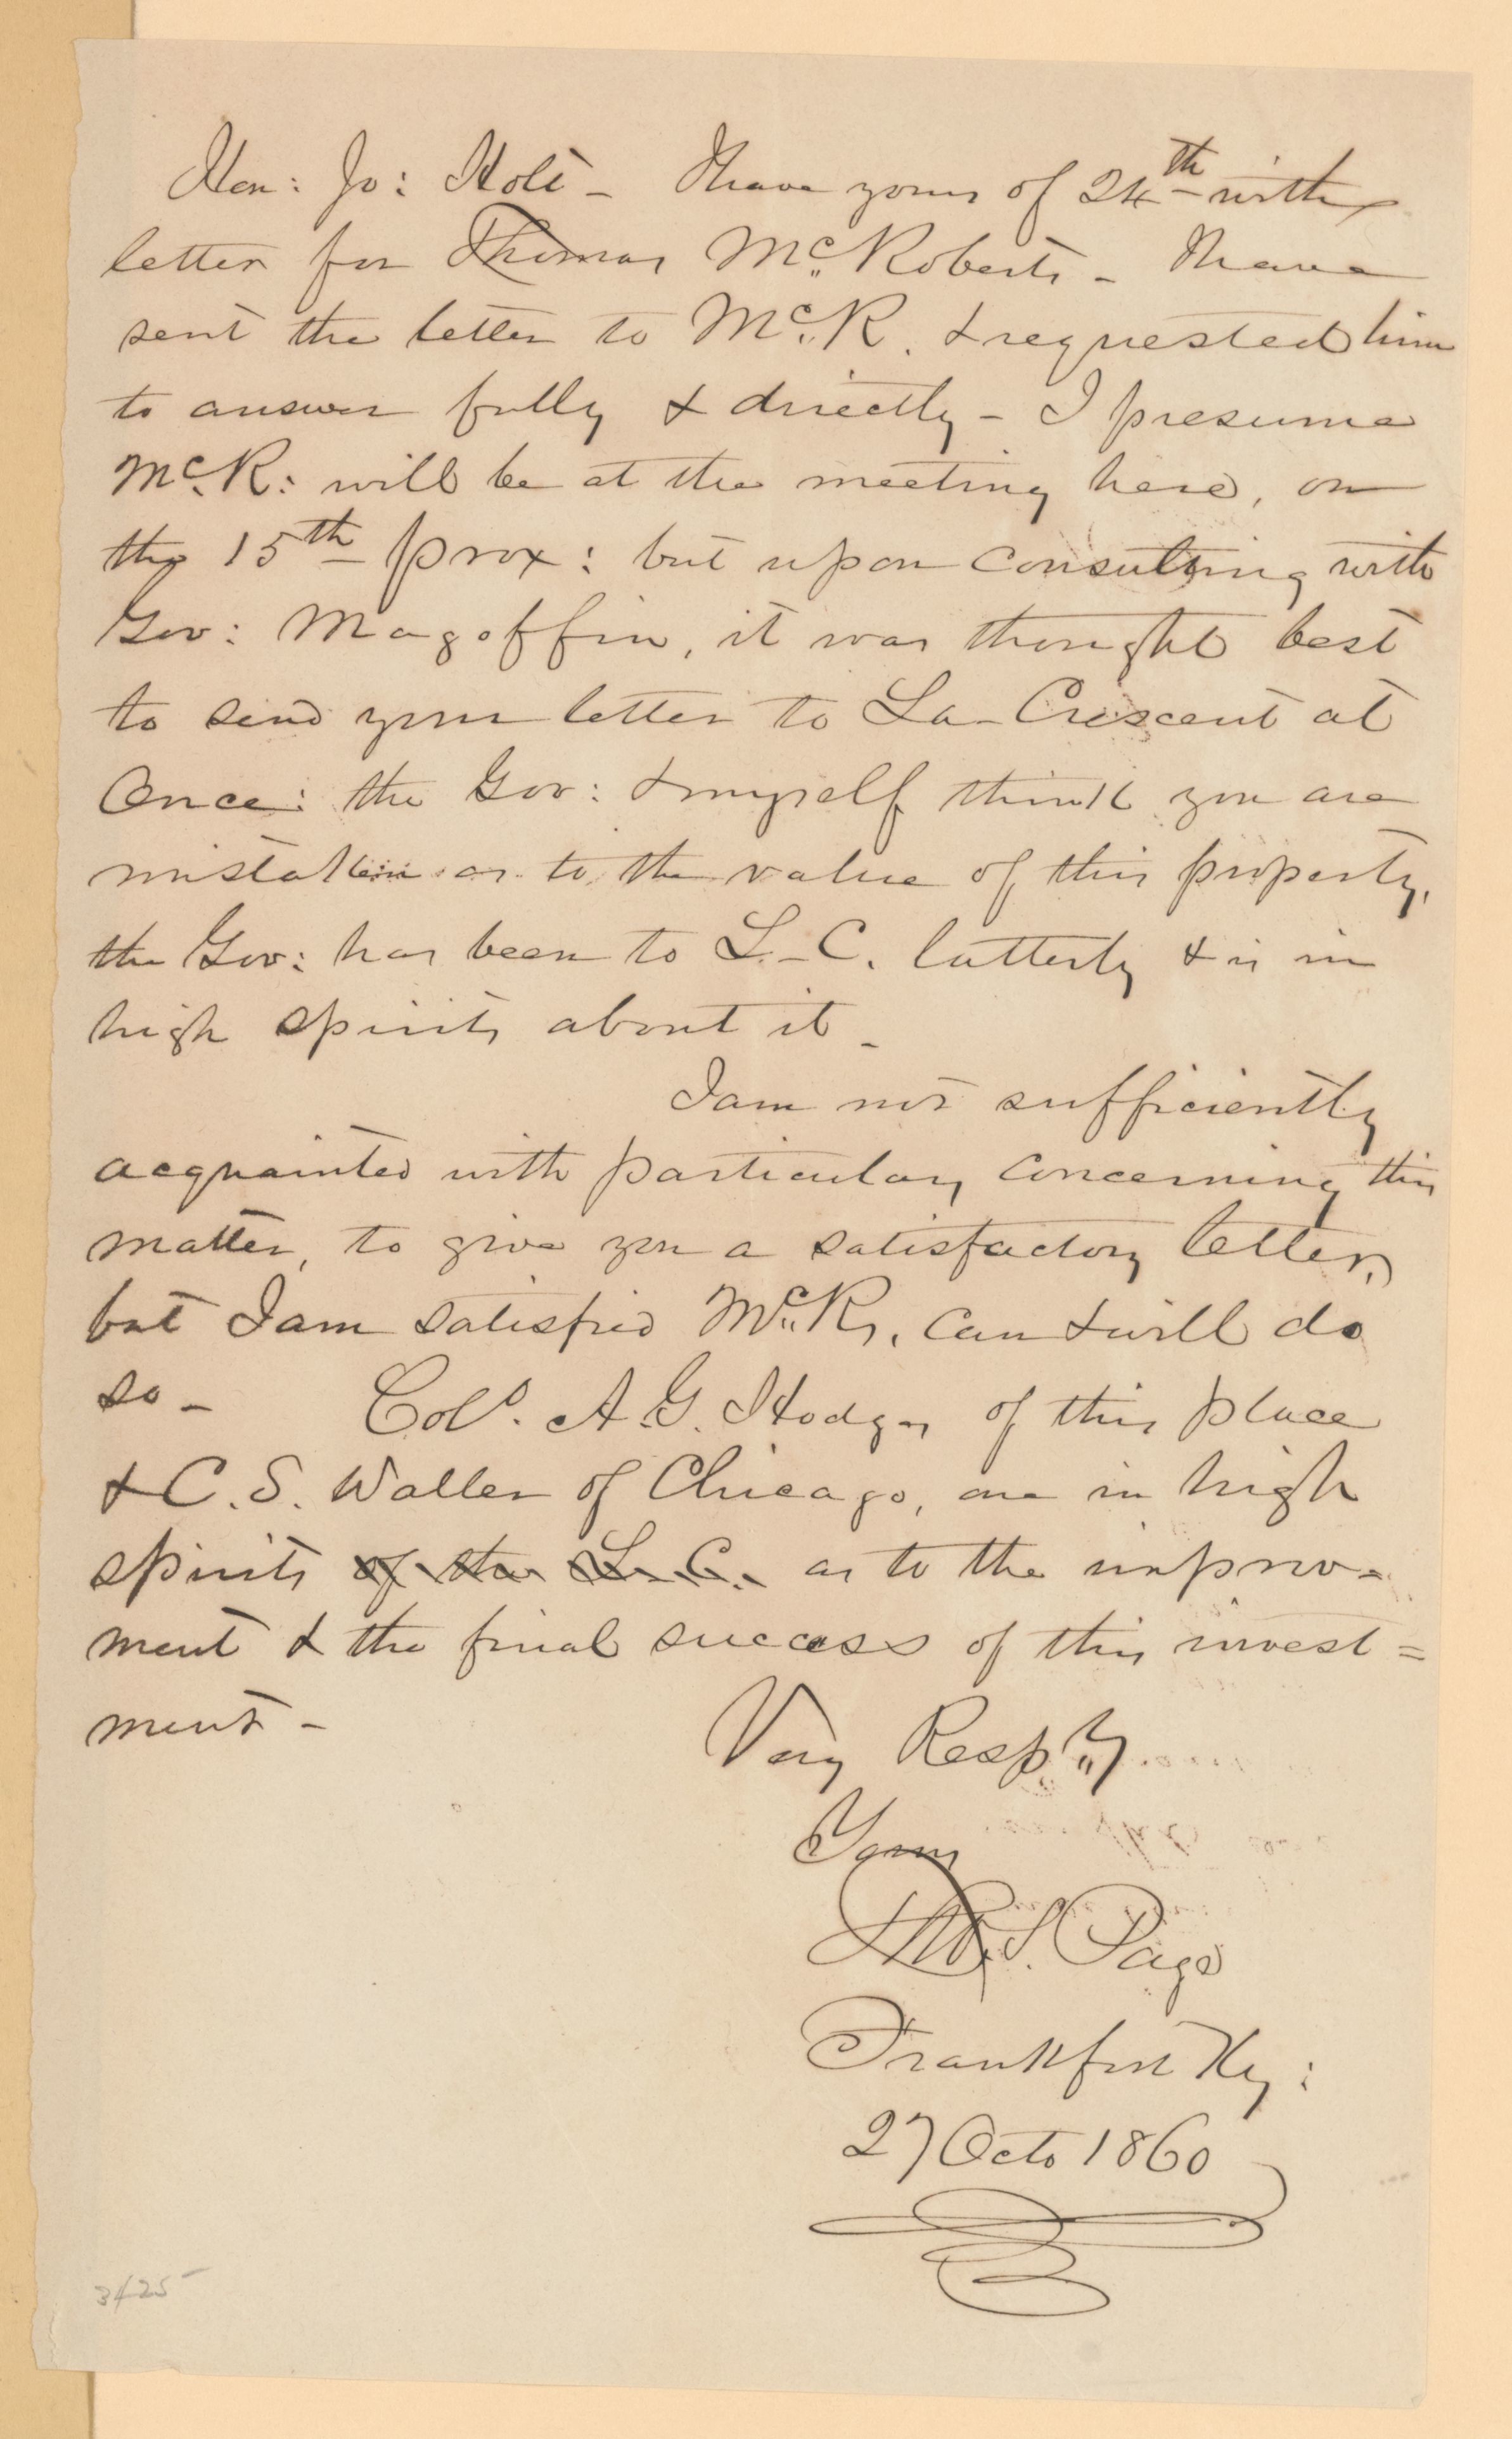 Hon: Jo: Holt - I have yours of 24th with
letter for Thomas McRoberts - I have
sent the letter to McR. & requested him
to answer fully & directly - I presume
McR: will be at the meeting here, on
the 15th prox: but upon consulting with
Gov: Magoffin, it was thought best
to send your letter to La-Crescent at
Once: the Gov: & myself think you are
mistaken as to the value of this property,
the Gov: has been to L-C. latterly & is in
high spirits about it -
I am not sufficiently
acquainted with particulars concerning this
matter, to give you a satisfactory letter,
but I am satisfied McR, can & will do
so - Colo. A. G. Hodges of this place
& C. S. Waller of Chicago, are in high
spirits of the L-C. as to the improv-
ment & the final success of this invest=
ment -
Very Respy
Yours
Tho. S. Page
Frankfort Ky:
27 Octo 1860
3425